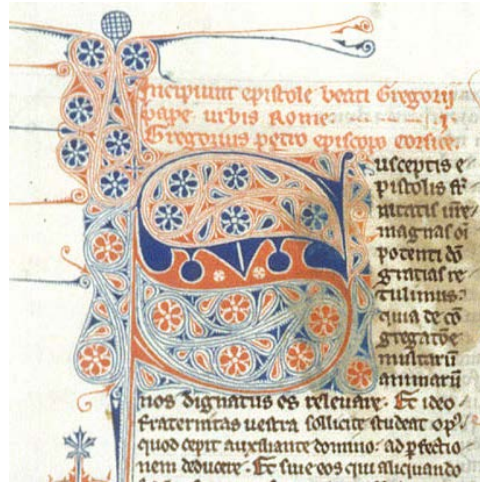 Incipiunt epistole beati Gregorij
pape urbis Rome
Gregorius petro episcopo corsice.
Susceptis e
pistolis fr̄
nitatis ur̄e
magnas oī
potenti dō
gratias re
tulimus.
quia de cō
gregatōe
multarū
animarū
nos dignatus es releuare. Et ideo
fraternitas uestra sollicite studeat opꝰ
quod cepit auxiliante domino: ad ꝑfectio
nem deducere. Et siue eos qui aliquando